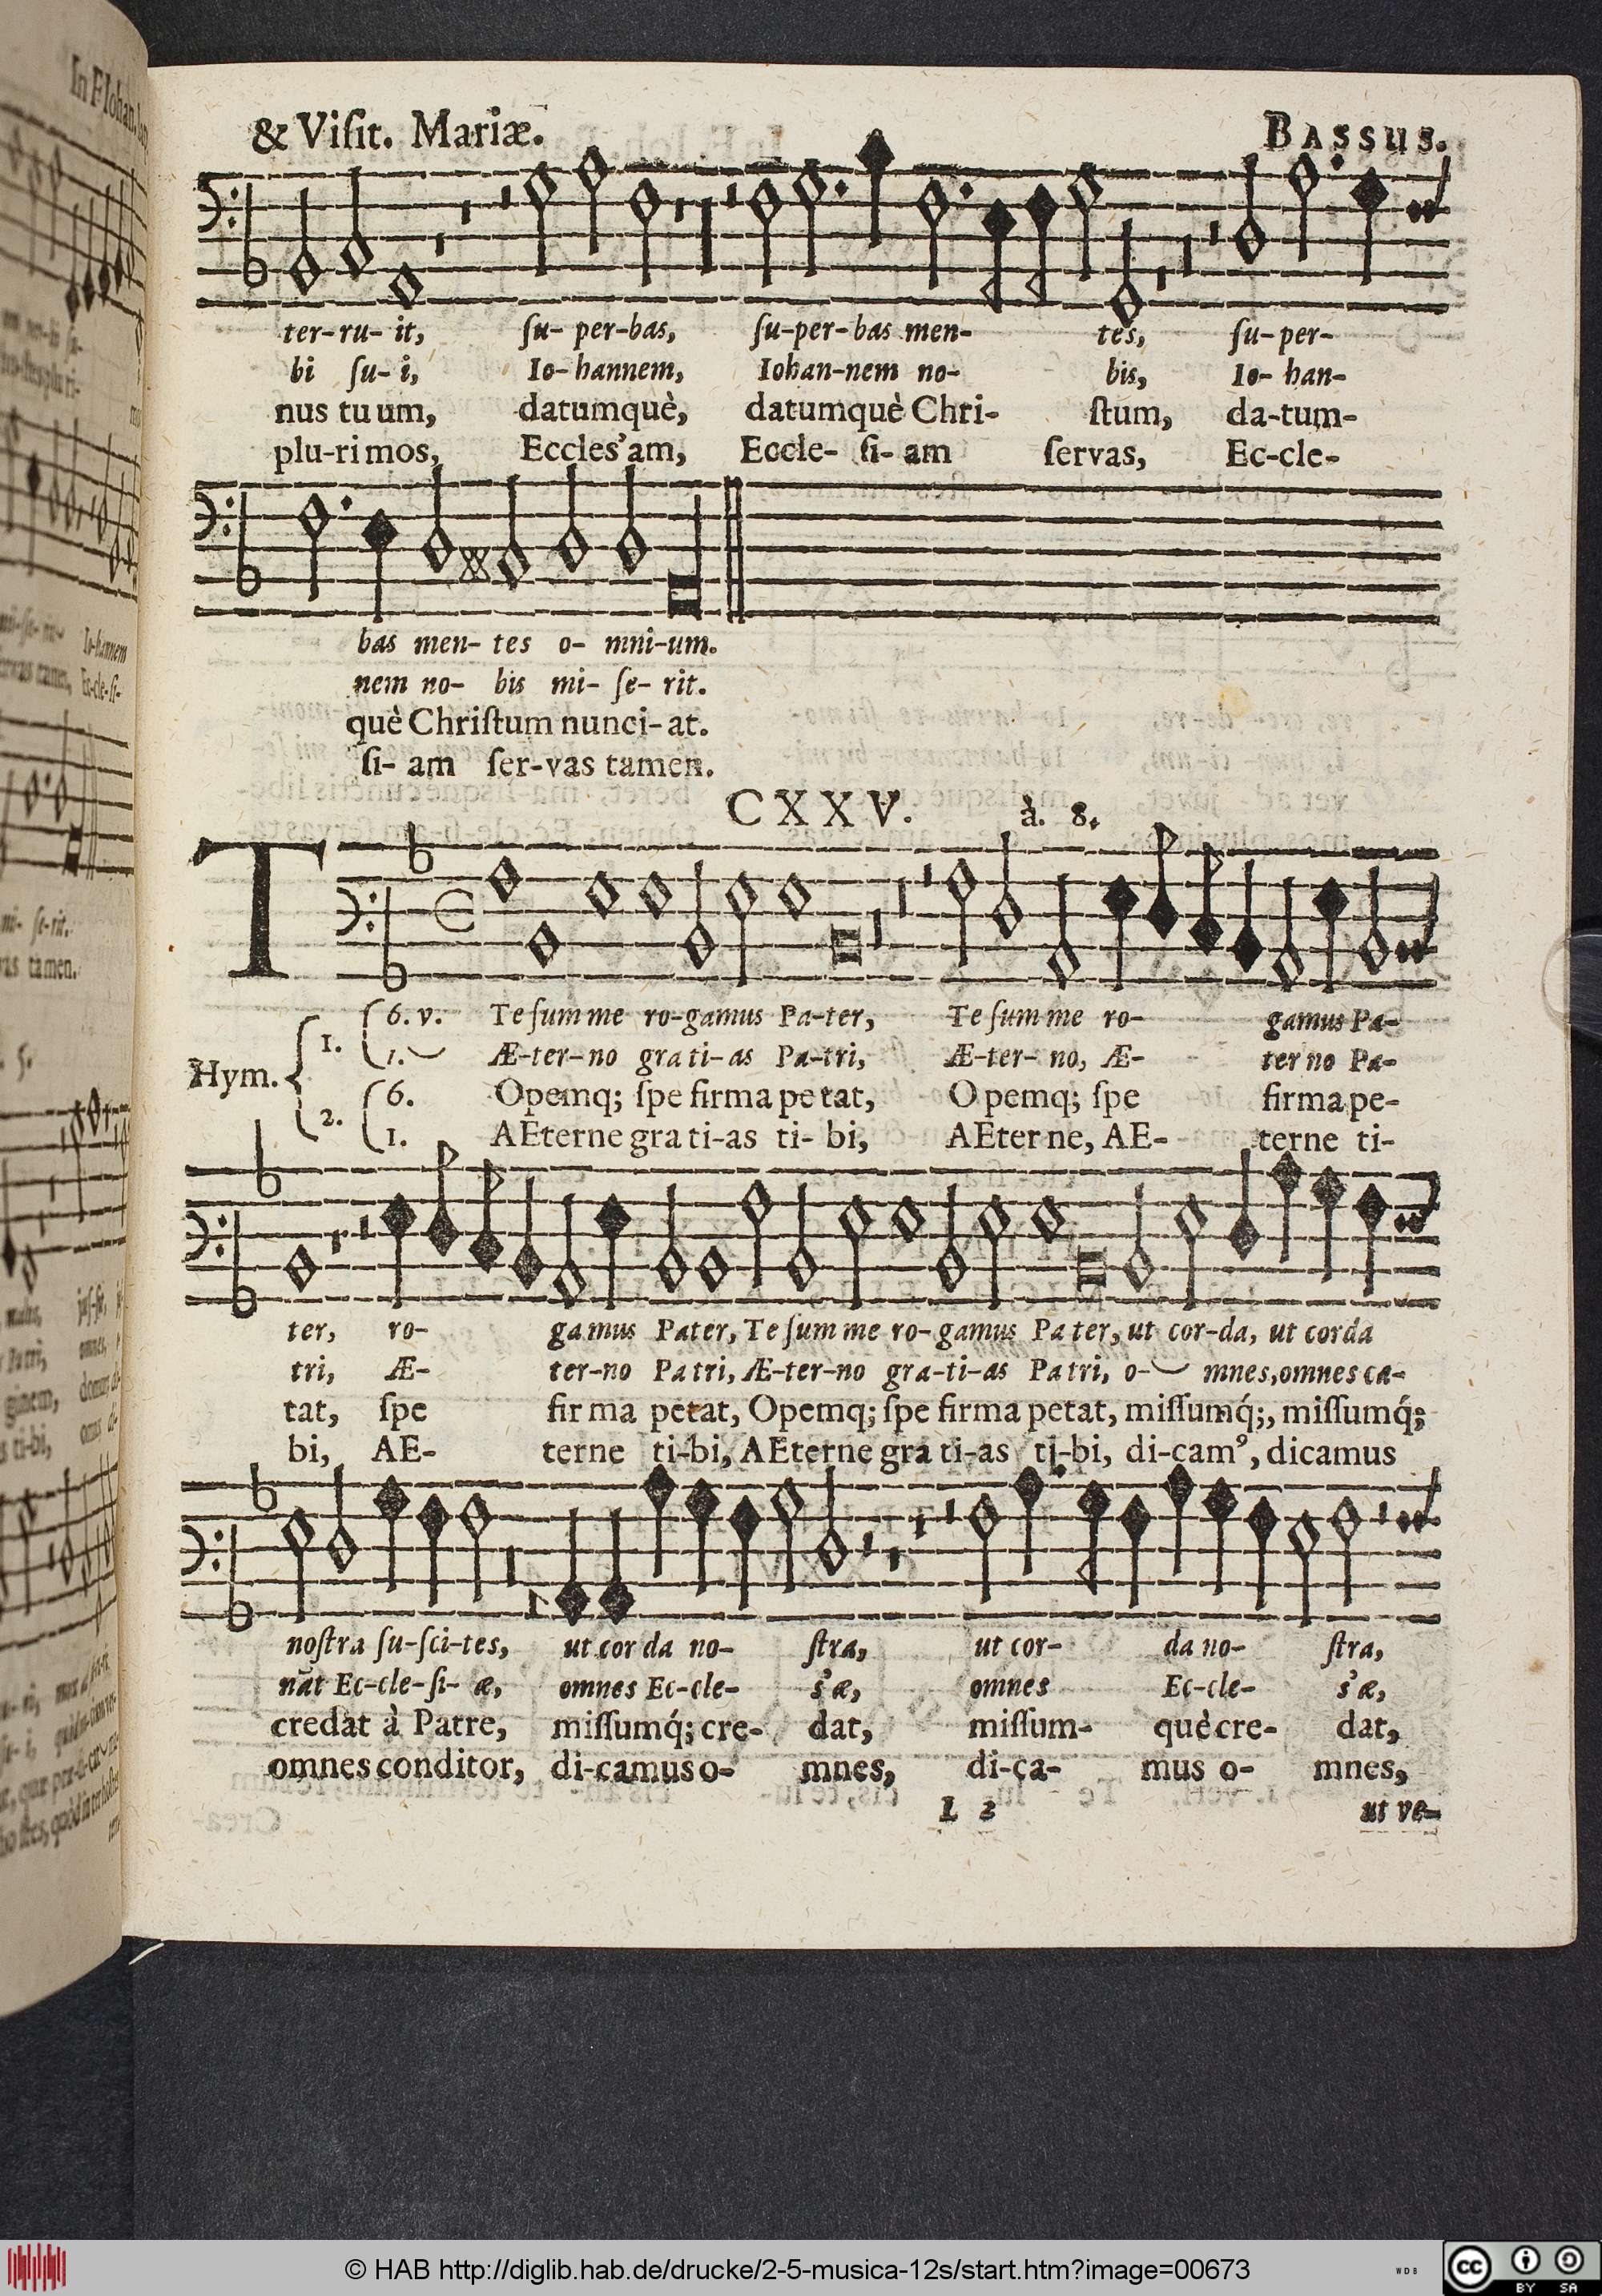 & Viſit. Mariæ. BASSUS.
ter-ru- it, ſu- per-bas, ſu-per-bas men- tes, ſu-per-
bi ſu- i, Io- hannem, Iohan-nem no- bis, Io- han-
nus tuum, datumquè, datumquè Chri- ſtum, da-tum-
plu-rimos, Eccleſ’am, Eccle- ſi- am ſervas, Ec-cle-
bas men- tes o- mni-um.
nem no- bis mi- ſe- rit.
què Chriſtum nunci- at.
ſi- am ſer-vas tamen.
CXXV. à. 8.
T
6. v. Te ſumme ro-gamus Pa-ter, Te ſumme ro- gamus Pa-
1. 1. Æ-ter-no grati-as Pa-tri, Æ-ter- no, Æ- terno Pa-
Hym.
2. 6. Opemq; ſpe firma petat, Opemq; ſpe firma pe-
1. AEterne grati-as ti- bi, AEterne, AE- terne ti-
ter, ro- gamus Pater, Te ſumme ro-gamus Pater, ut cor-da, ut corda
tri, Æ- ter-no Patri, Æ-ter-no gra-ti-as Patri, o- mnes, omnes ca-
tat, ſpe firma petat, Opemq; ſpe firma petat, miſſumq́;, miſſumq́;
bi, AE- terne ti-bi, AEterne grati-as ti-bi, di-camꝰ, dicamus
noſtra ſu-ſci-tes, ut corda no- ſtra, ut cor- da no- ſtra,
nāt Ec-cle-ſi- æ, omnes Ec-cle- ſ’æ, omnes Ec-cle- ſ’æ,
credat à Patre, miſſumq́; cre- dat, miſſum- què cre- dat,
omnes conditor, di-camus o- mnes, di-ca- mus o- mnes,
L 2 ut ve-
© HAB http://diglib.hab.de/drucke/2-5-musica-12s/start.htm?image=00673
WDB
cc BY SA